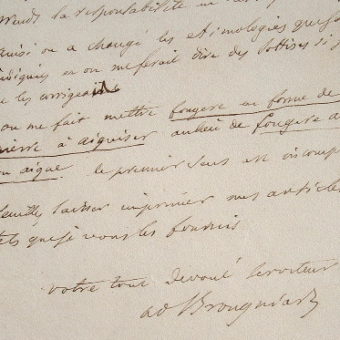 la responsabilité
on a changé les étimologies que j'ai
indiquées on me ferait dire des sottises si j
les corrigeait
on me fait mettre fougere en forme de
pierre à aiguiser au lieu de fougere d
aigue le premier sens est
veuillez laisser imprimer mes articles
tels que je vous les fournis
votre tout devoué serviteur
ad Brongniart